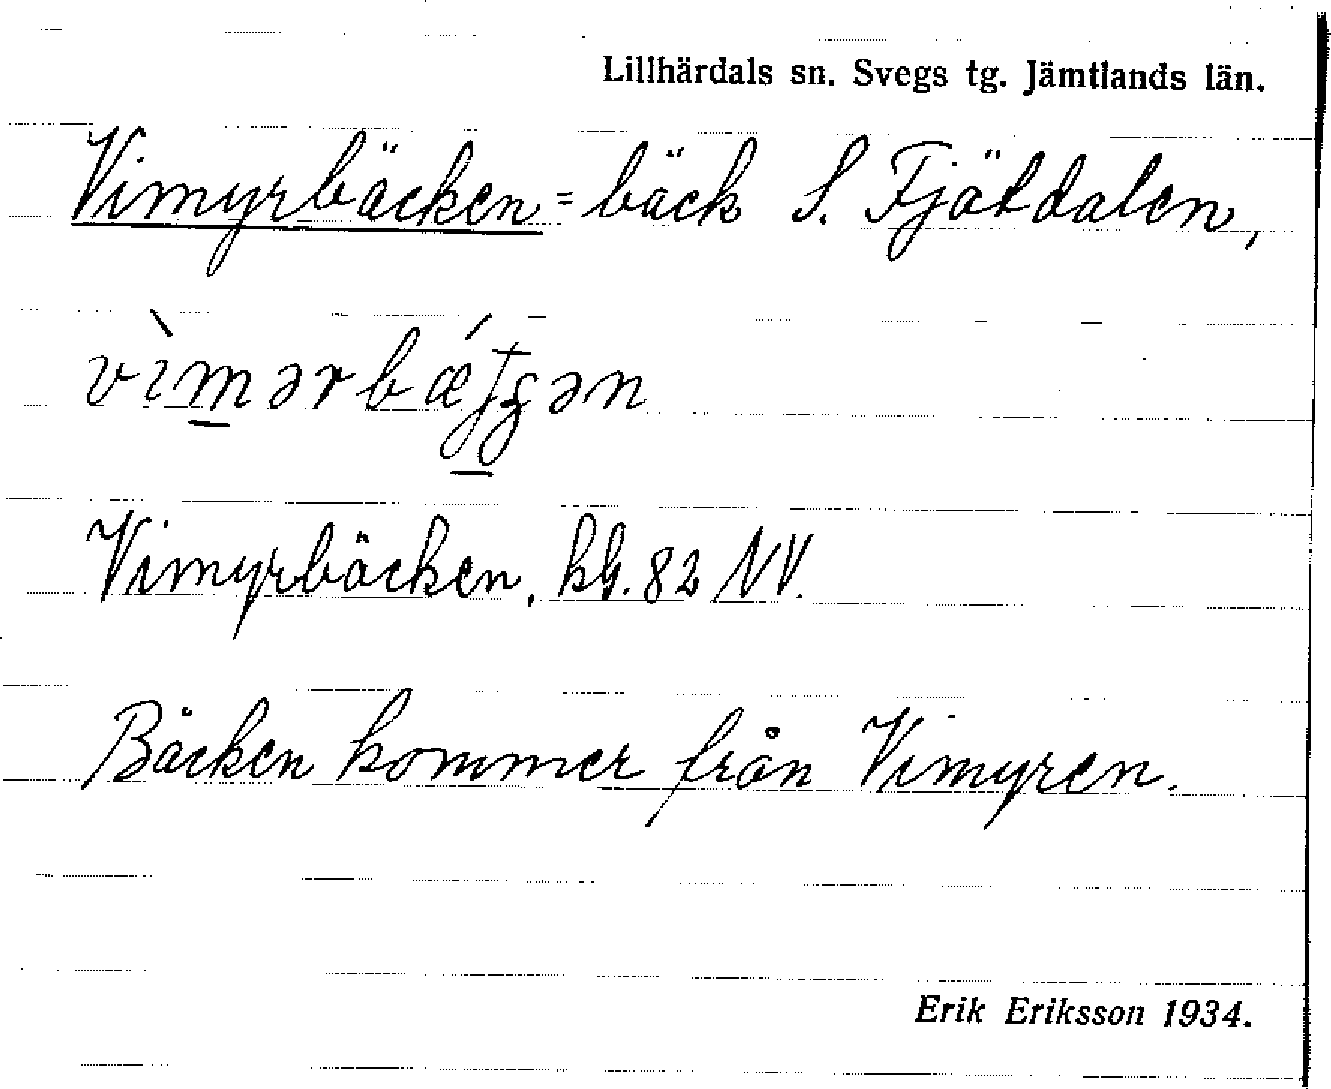 Lillhärdals sn. Svegs tg. Jämtlands län.
Vimyrbäcken = bäck S. Fjätdalen,
Vimyrbäcken, kb. 82 NV.
Bäcken kommer från Vimyren.
Erik Eriksson 1934.